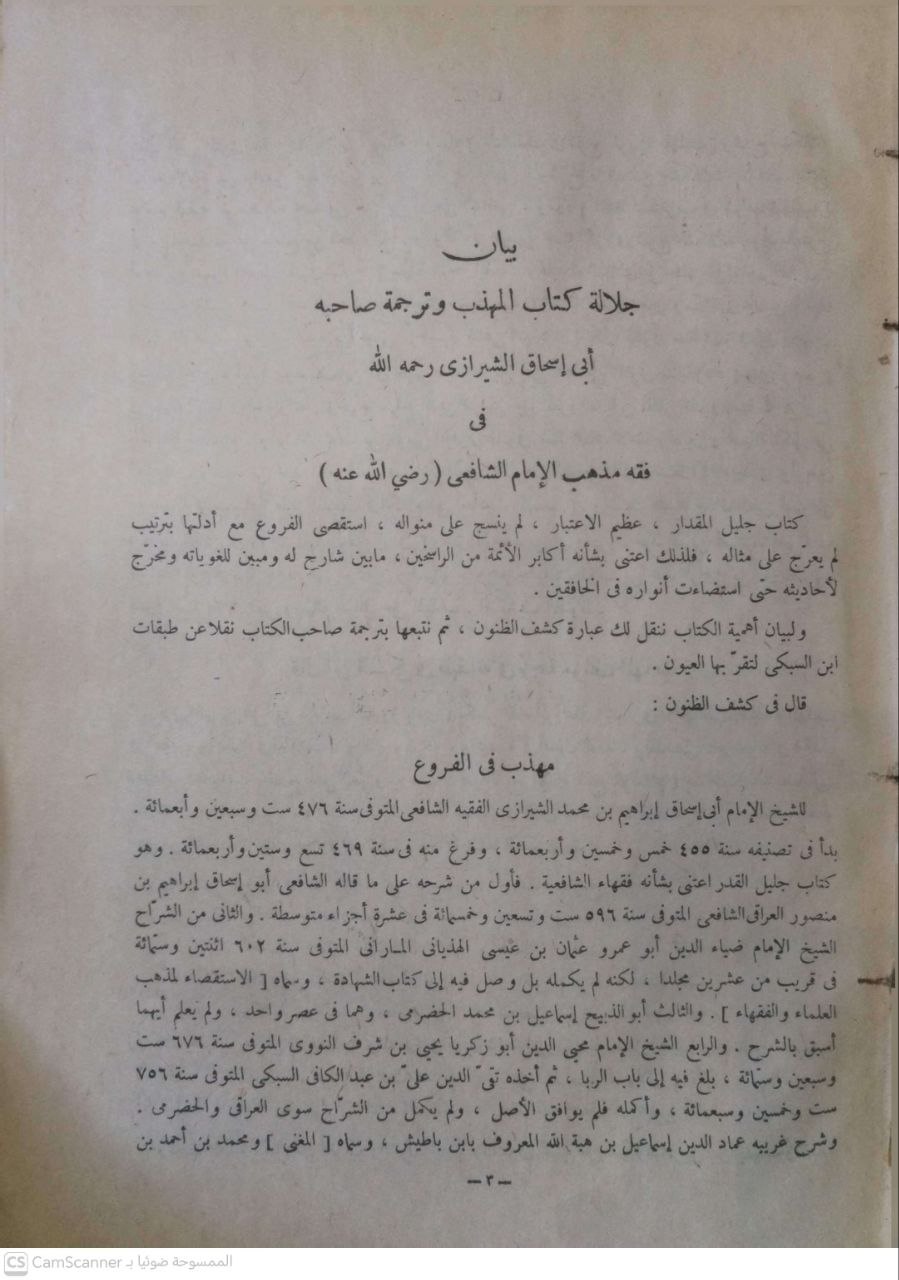 بيان
جلالة كتاب المهذب وترجمة صاحبه
أبى إسحاق الشيرازى رحمه الله
فى
فقه مذهب الإمام الشافعى ( رضي الله عنه )
كتاب جليل المقدار ، عظيم الاعتبار ، لم ينسج على منواله ، استقصى الفروع مع أدلتها بترتيب
لم يعرّج على مثاله ، فلذلك اعتنى بشأنه أكابر الأئمة من الراسخين ، مابين شارح له ومبين للغوياته ومخرّج
لأحاديثه حتى استضاءت أنواره فى الخافقين .
ولبيان أهمية الكتاب ننقل لك عبارة كشف الظنون ، ثم نتبعها بترجمة صاحب الكتاب نقلا عن طبقات
ابن السبكى لتقرّ بها العيون .
قال فى كشف الظنون :
مهذب فى الفروع
للشيخ الإمام أبى إسحاق إبراهيم بن محمد الشيرازى الفقيه الشافعى المتوفى سنة ٤٧٦ ست وسبعين وأبعمائة .
بدأ فى تصنيفه سنة ٤٥٥ خمس وخمسين وأربعمائة ، وفرغ منه فى سنة ٤٦٩ تسع وستين وأربعمائة . وهو
كتاب جليل القدر اعتنى بشأنه فقهاء الشافعية . فأول من شرحه على ما قاله الشافعى أبو إسحاق إبراهيم بن
منصور العراقى الشافعى المتوفى سنة ٥٩٦ ست وتسعين وخمسمائة فى عشرة أجزاء متوسطة . والثانى من الشرّاح
الشيخ الإمام ضياء الدين أبو عمرو عثمان بن عيسى الهذبانى المارانى المتوفى سنة ٦٠٢ اثنتين وستمائة
فى قريب من عشرين مجلدا ، لكنه لم يكمله بل وصل فيه إلى كتاب الشهادة ، وسماه [ الاستقصاء لمذهب
العلماء والفقهاء ] . والثالث أبو الذبيح إسماعيل بن محمد الحضرمى ، وهما فى عصر واحد ، ولم يعلم أيهما
أسبق بالشرح . والرابع الشيخ الإمام محيي الدين أبو زكريا يحيى بن شرف النووى المتوفى سنة ٦٧٦ ست
وسبعين وستمائة ، بلغ فيه إلى باب الربا ، ثم أخذه تقىّ الدين علىّ بن عبد الكافى السبكى المتوفى سنة ٧٥٦
ست وخمسين وسبعمائة ، وأكمله فلم يوافق الأصل ، ولم يكمل من الشرّاح سوى العراقى والحضرمى .
وشرح غريبه عماد الدين إسماعيل بن هبة الله المعروف بابن باطيش ، وسماه [ المغنى ] ومحمد بن أحمد بن
— ٣ —
CS CamScanner الممسوحة ضوئيا بـ